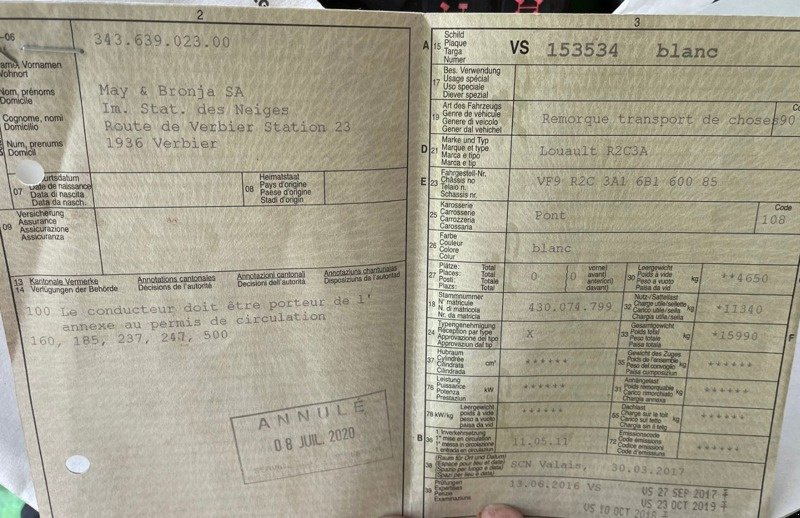 2
-06
343.639.023.00
Name, Vornamen
Wohnort
Nom, prénoms
Domicile
Cognome, nomi
Domicilio
Num, prenums
Domicil
May & Bronja SA
Im. Stat. des Neiges
Route de Verbier Station 23
1936 Verbier
07
Date de naissance
Data di nascita
Data da nasch.
08
Heimatstaat
Pays d'origine
Paese d'origine
Stadi d'origin
09
Versicherung
Assurance
Assicurazione
Assicuranza
13 Kantonale Vermerke Annotations cantonales Annotazioni cantonali Annotaziuns chantunalas
14 Verfügungen der Behörde Décisions de l'autorité Decisioni dell'autorità Disposiziuns da l'autoritad
100 Le conducteur doit être porteur de l'
annexe au permis de circulation
160, 185, 237, 247, 500
ANNULÉ
08 JUIL. 2020
3
A 15
Schild
Plaque
Targa
Numer
VS 153534 blanc
17
Bes. Verwendung
Usage spécial
Uso speciale
Diever spezial
19
Art des Fahrzeugs
Genre de véhicule
Genere di veicolo
Gener dal vehichel
Remorque transport de choses90
D 21
Marke und Typ
Marque et type
Marca e tipo
Marca e tip
Louault R2C3A
E 23
Fahrgestell-Nr.
Châssis no
Telaio n.
Schassis nr.
VF9 R2C 3A1 6B1 600 85
25
Karosserie
Carrosserie
Carrozzeria
Carossaria
Pont
Code
108
26
Farbe
Couleur
Colore
Colur
blanc
27
Plätze: Total
Places: Total
Posti: Totale
Plazs: Total
0 (0
vorne)
avant)
anteriori)
davant)
30
Leergewicht
Poids à vide
Peso a vuoto
Paisa da vid
kg
**4650
18
Stammnummer
N° matricule
N. di matricola
Nr. da matricla
430.074.799
32
Nutz-/Sattellast
Charge utile/sellette
Carico utile/sella
Chargia utila/sella
kg
*11340
24
Typengenehmigung
Réception par type
Approvazione del tipo
Approvaziun dal tip
X
33
Gesamtgewicht
Poids total
Peso totale
Paisa totala
kg
*15990
F
37
Hubraum
Cylindrée
Cilindrata
Cilindrada
cm³
******
35
Gewicht des Zuges
Poids de l'ensemble
Peso del convoglio
Paisa cumposiziun
kg
******
76
Leistung
Puissance
Potenza
Prestaziun
kW
******
31
Anhängelast
Poids remorquable
Carico rimorchiato
Chargia annexa
kg
******
78 kW/kg
Leergewicht
poids à vide
peso a vuoto
paisa da vid
******
55
Dachlast
Charge sur le toit
Carico sul tetto
Chargia sin il tetg
kg
******
B 36
1. Inverkehrsetzung
1re mise en circulation
1a messa in circolazione
1. entrada en circulaziun
11.05.11
72
Emissionscode
Code émissions
Codice emissioni
Code d'emissiuns
38
(Raum für Ort und Datum)
(Espace pour lieu et date)
(Spazio per luogo e data)
(Spazi per lieu e data)
SCN Valais, 30.03.2017
39
Prüfungen
Expertises
Perizie
Examinaziuns
13.06.2016 VS
VS 27 SEP 2017
VS 23 OCT 2019
VS 10 OCT 2018